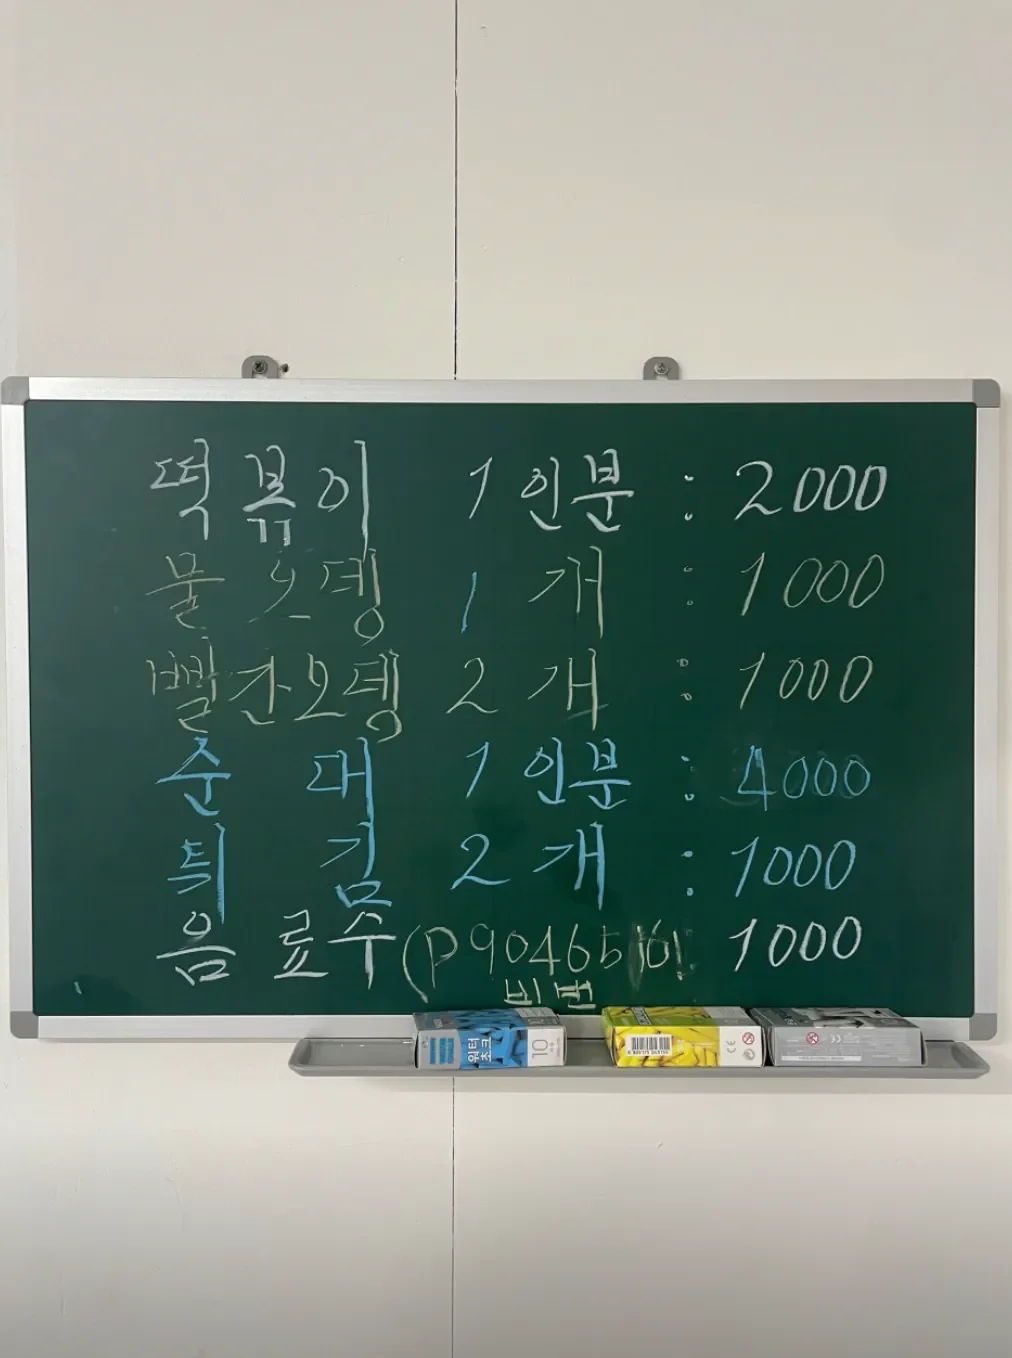 떡볶이 1인분 : 2000
물오뎅 1개 : 1000
빨간오뎅 2개 : 1000
순대 1인분 : 4000
튀김 2개 : 1000
음료수 1000
워터
초크
10